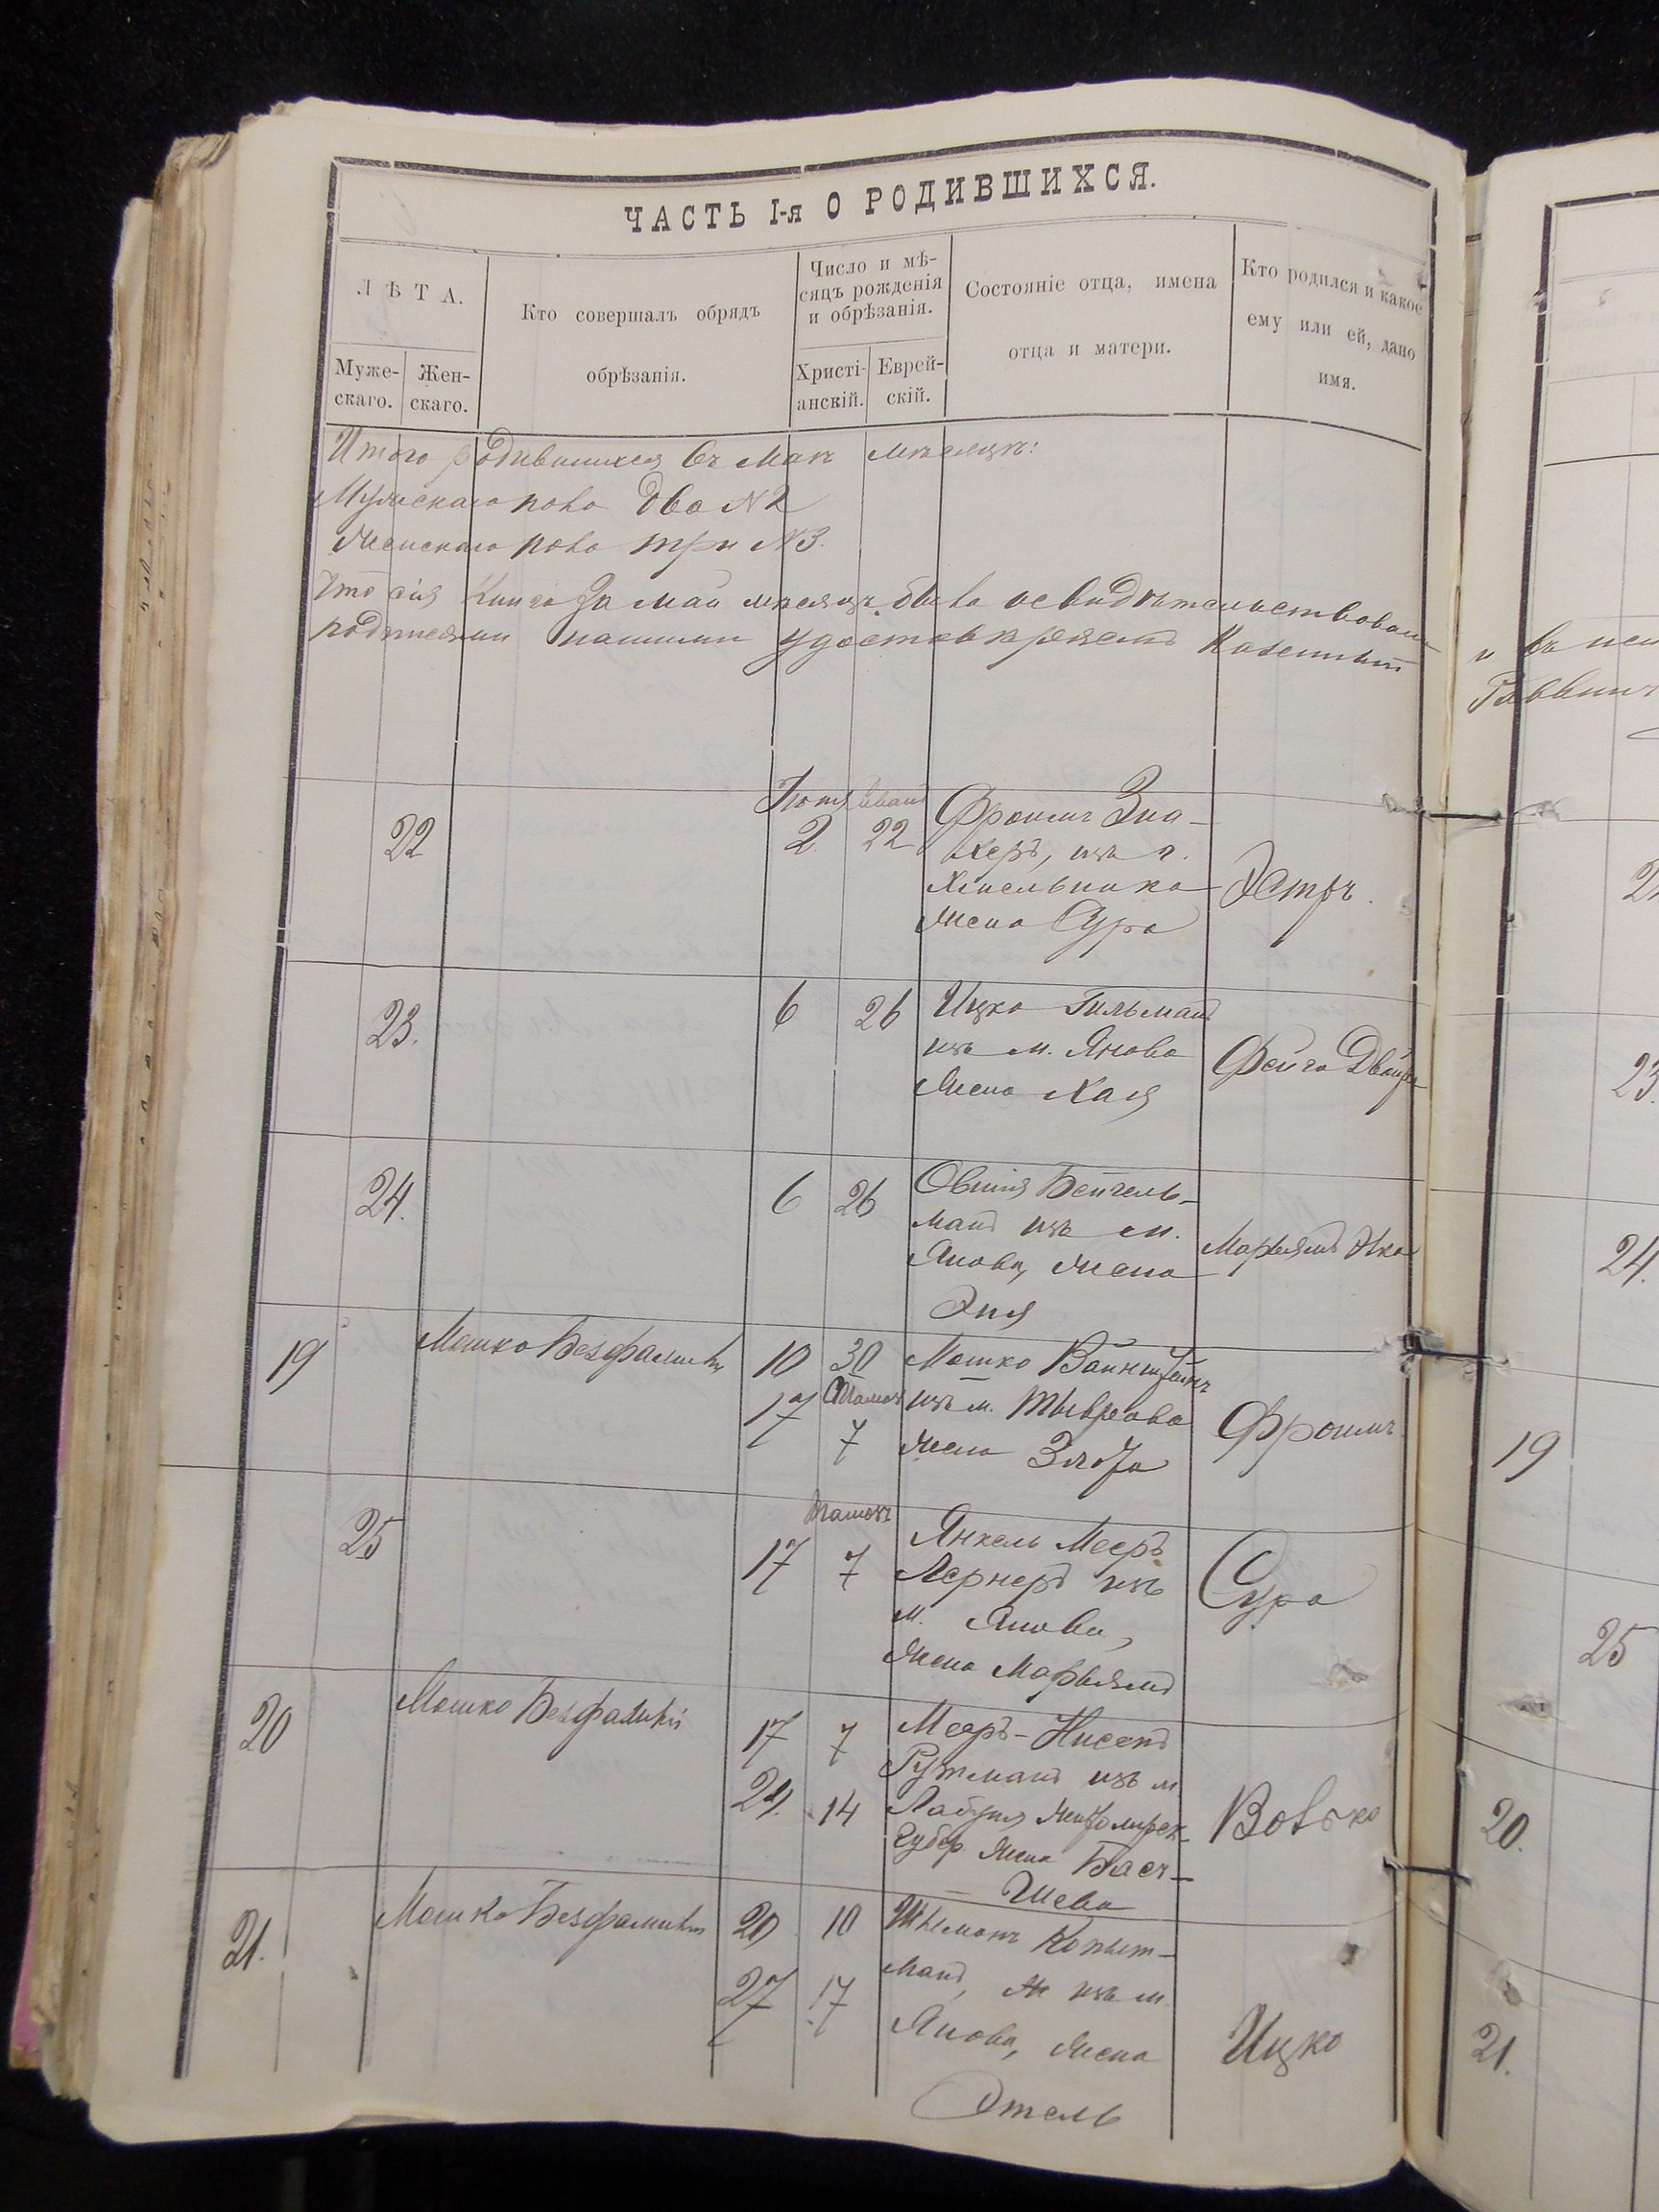 ЧАСТЬ I-я О РОДИВШИХСЯ.
ЛѢТА.
Муже-
скаго.
Жен-
скаго.
Кто совершалъ обрядъ
обрѣзанія.
Число и мѣ-
сяцъ рожденія
и обрѣзанія.
Христі-
анскій.
Еврей-
скій.
Состояніе отца, имена
отца и матери.
Кто родился и какое
ему или ей, дано
имя.
Итого родившихся въ Маѣ мѣсяцѣ:
Мужскаго пола два №2
Женскаго пола три №3.
Что сія Книга За май мѣсяцъ была освидѣтельствована
подписями нашими удостовѣряемъ Казенный
22
Іюня Сивант
2 22
Фроимъ Зна-
херъ, изъ г.
Хмельника
жена Сура
Эстръ.
23.
6 26
Ицко Гильманъ
изъ м. Янова
жена Хая
Фейга Двойра
24.
6 26
Овшія Бейгель-
манъ изъ м.
Янова, жена
Эня
Марьямъ Эка
19
Мошко Безфамильн
10 30
17 Тамозъ
7
Мошко Вайнштейнъ
изъ м. Тыврова
жена Злота
Фроимъ
25
Тамозъ
17 7
Янкель Мееръ
Лернеръ изъ
м. Янова,
жена Марьямъ
Сура
20
Мошко Безфамильн
17 7
24. 14
Мееръ-Нисенъ
Рутманъ изъ м.
Лабуня Житомирск.
Губер. жена Бася-
Шева
Волько
21.
Мошко Безфамильн
20 10
27 17
Шлемонъ Копыт-
манъ, изъ м.
Янова, жена
Этель
Ицко
19
20.
21.
23.
24.
25